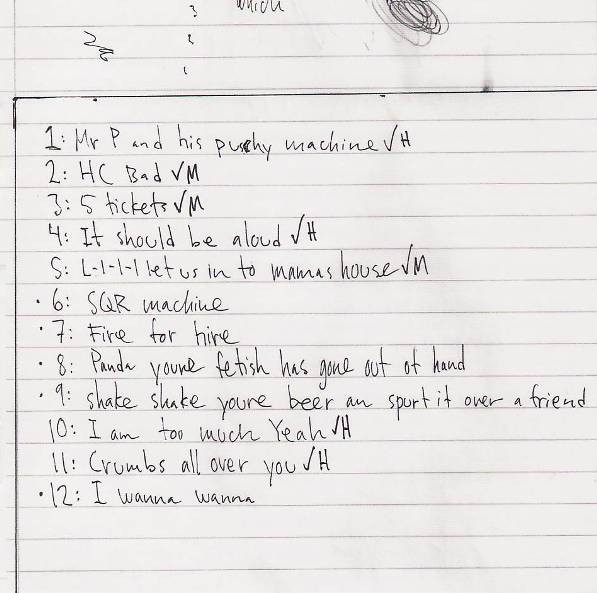 which
3
2
1
1: Mr P and his puschy machine √H
2: HC Bad √M
3: 5 tickets √M
4: It should be aloud √H
5: L-l-l-l let us in to mamas house √M
· 6: SQR machine
· 7: Fire for hire
· 8: Panda youre fetish has gone out of hand
· 9: shake shake youre beer an spurt it over a friend
10: I am too much Yeah √H
11: Crumbs all over you √H
· 12: I wanna wanna